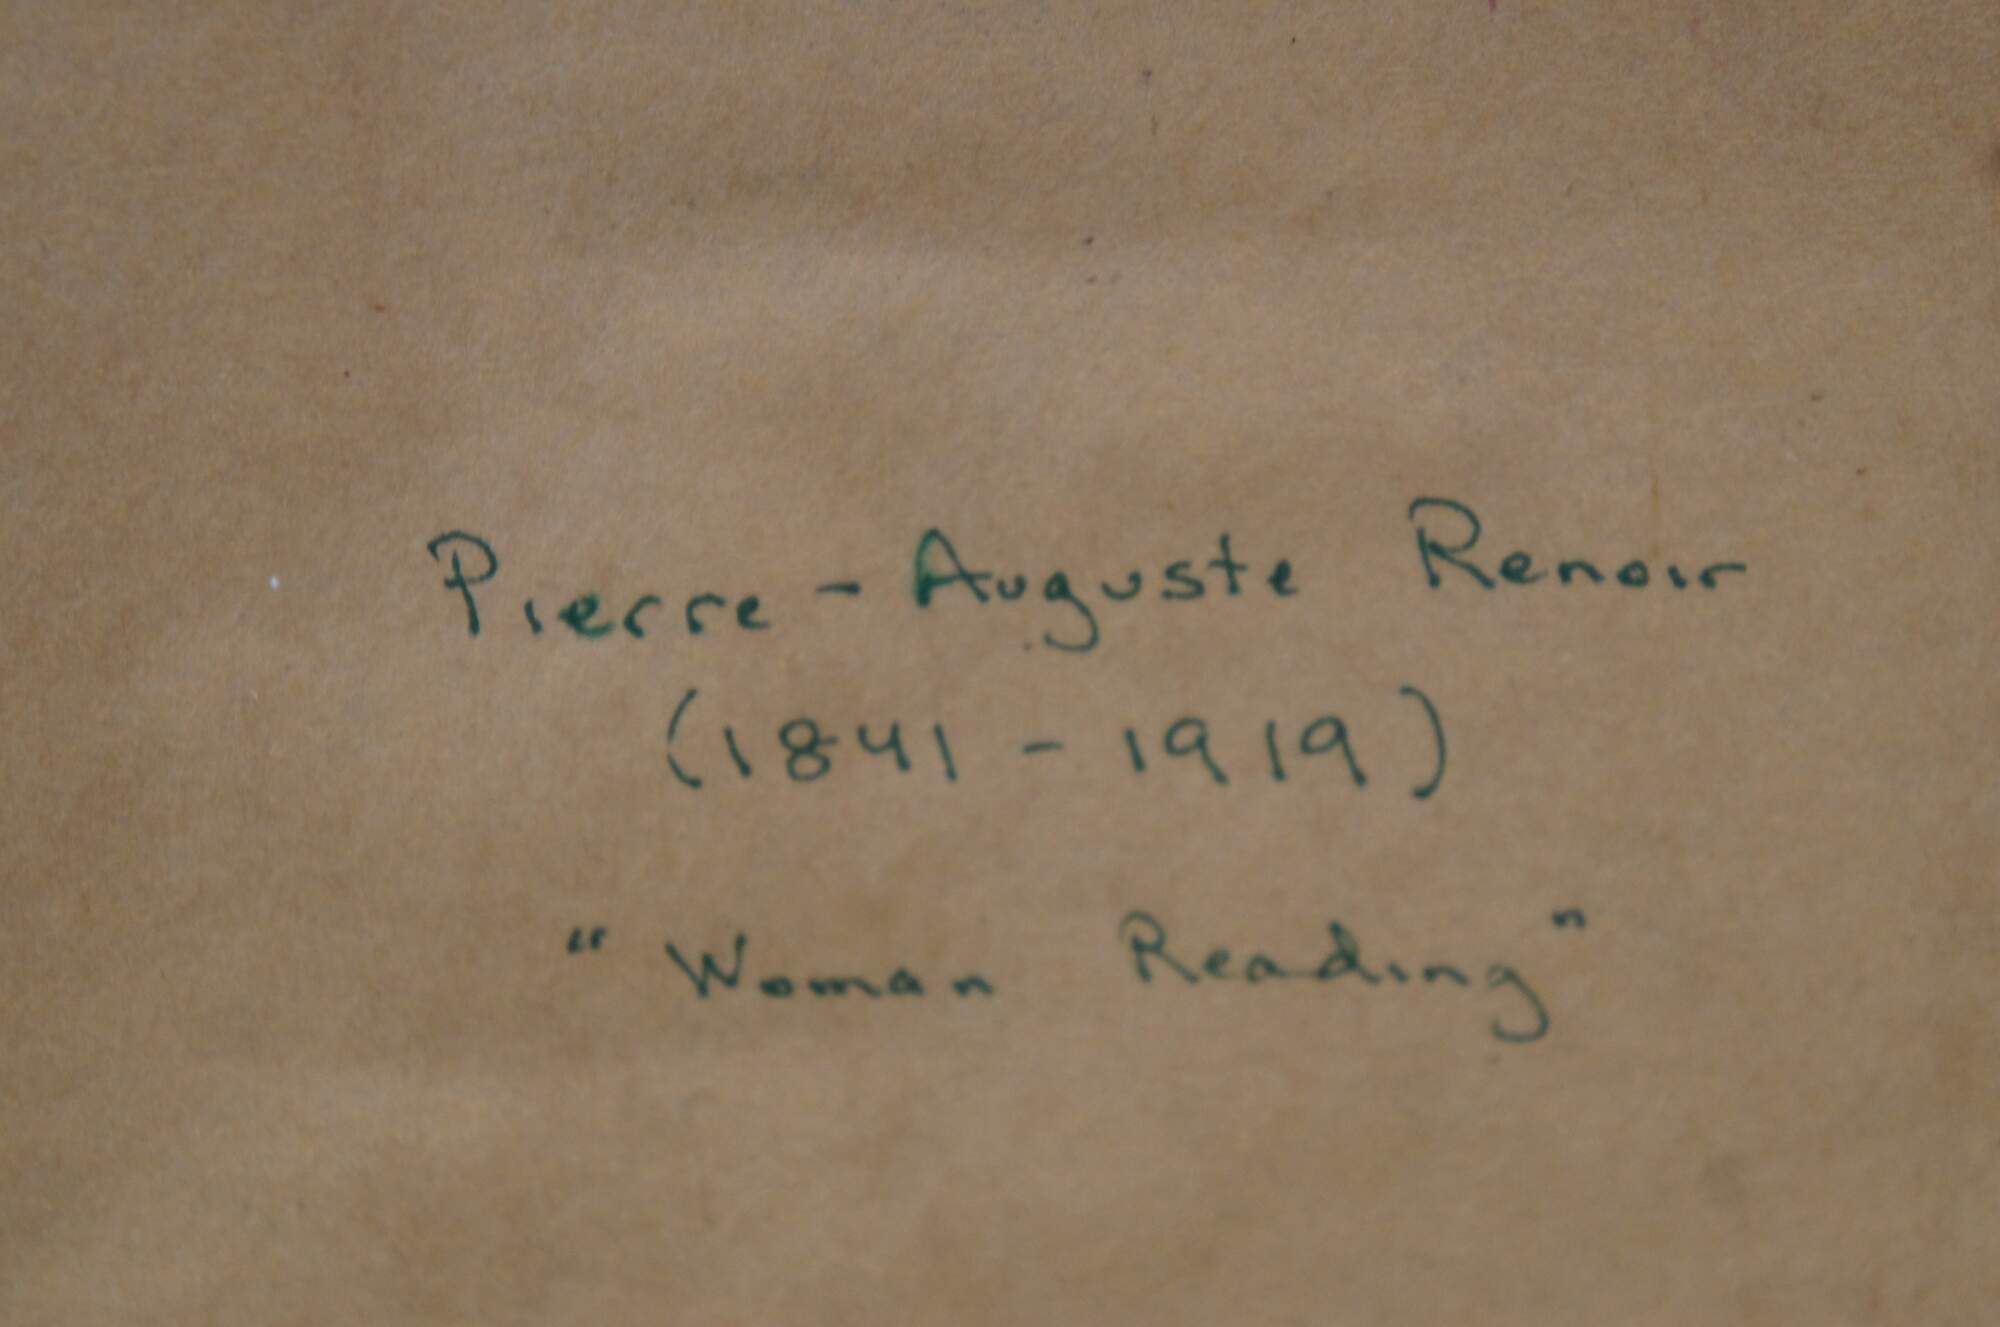 Pierre - Auguste Renoir
(1841 - 1919)
"Woman Reading"